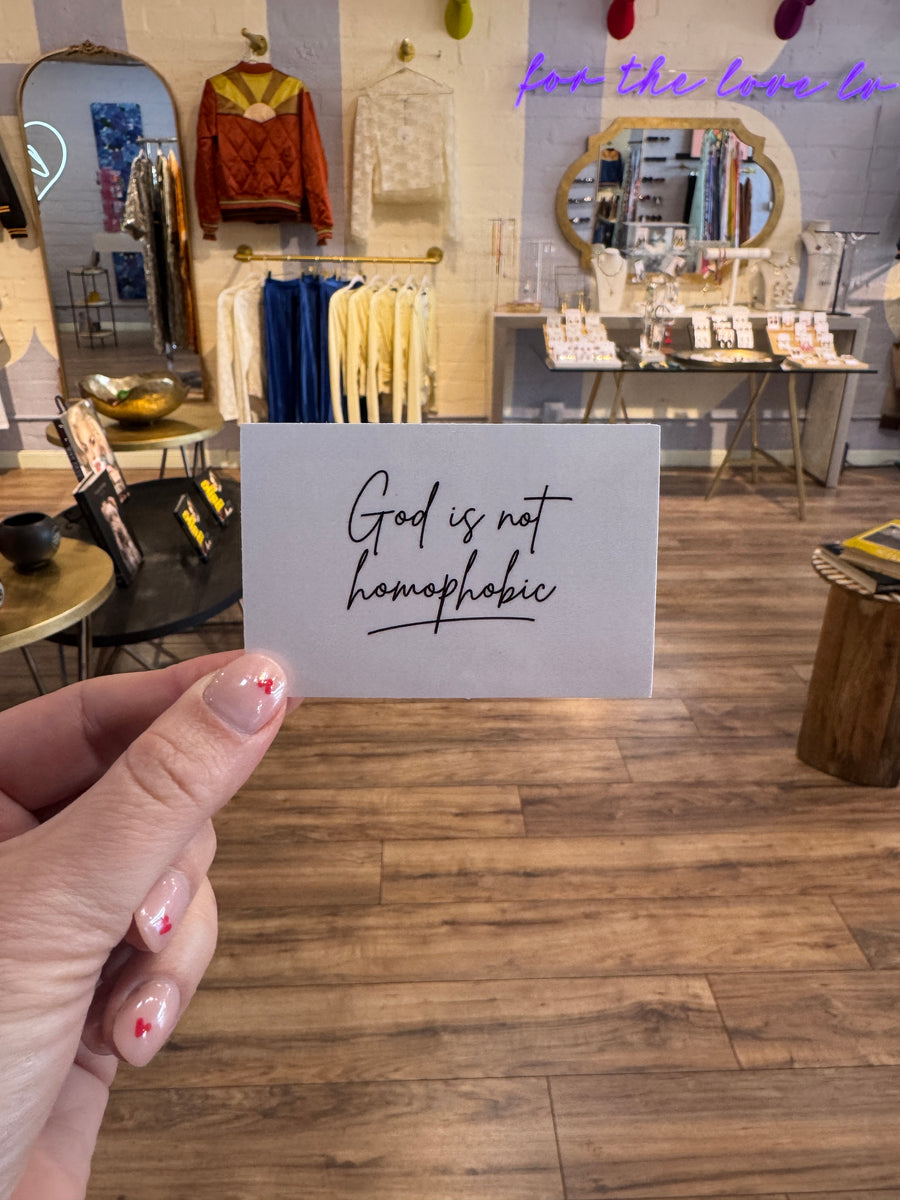 for the love lo
God is not
homophobic